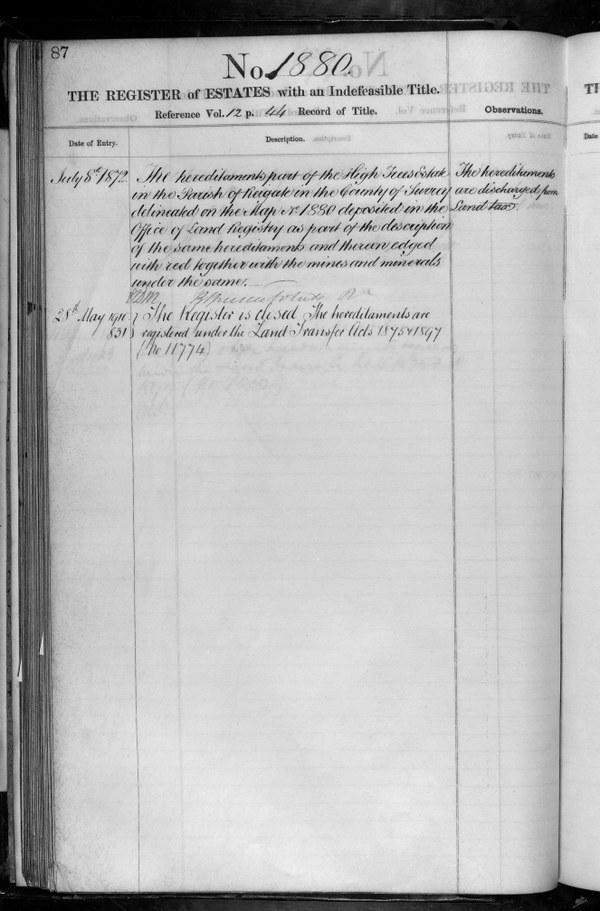 87
No. 1880.
THE REGISTER of ESTATES with an Indefeasible Title.
Reference Vol. 12 p. 44 Record of Title.
Observations.
Date of Entry.
Description.
July 8th 1872
The hereditaments part of the High Trees Estate
in the Parish of Reigate in the County of Surrey
delineated on the Map No 1880 deposited in the
Office of Land Registry as part of the description
of the same hereditaments and therein edged
with red together with the mines and minerals
under the same.
The hereditaments
are discharged from
Land tax.
28th May 1910
831
The Register is closed The hereditaments are
registered under the Land Transfer Acts 1875 & 1897
(No 11774)
TH
Date